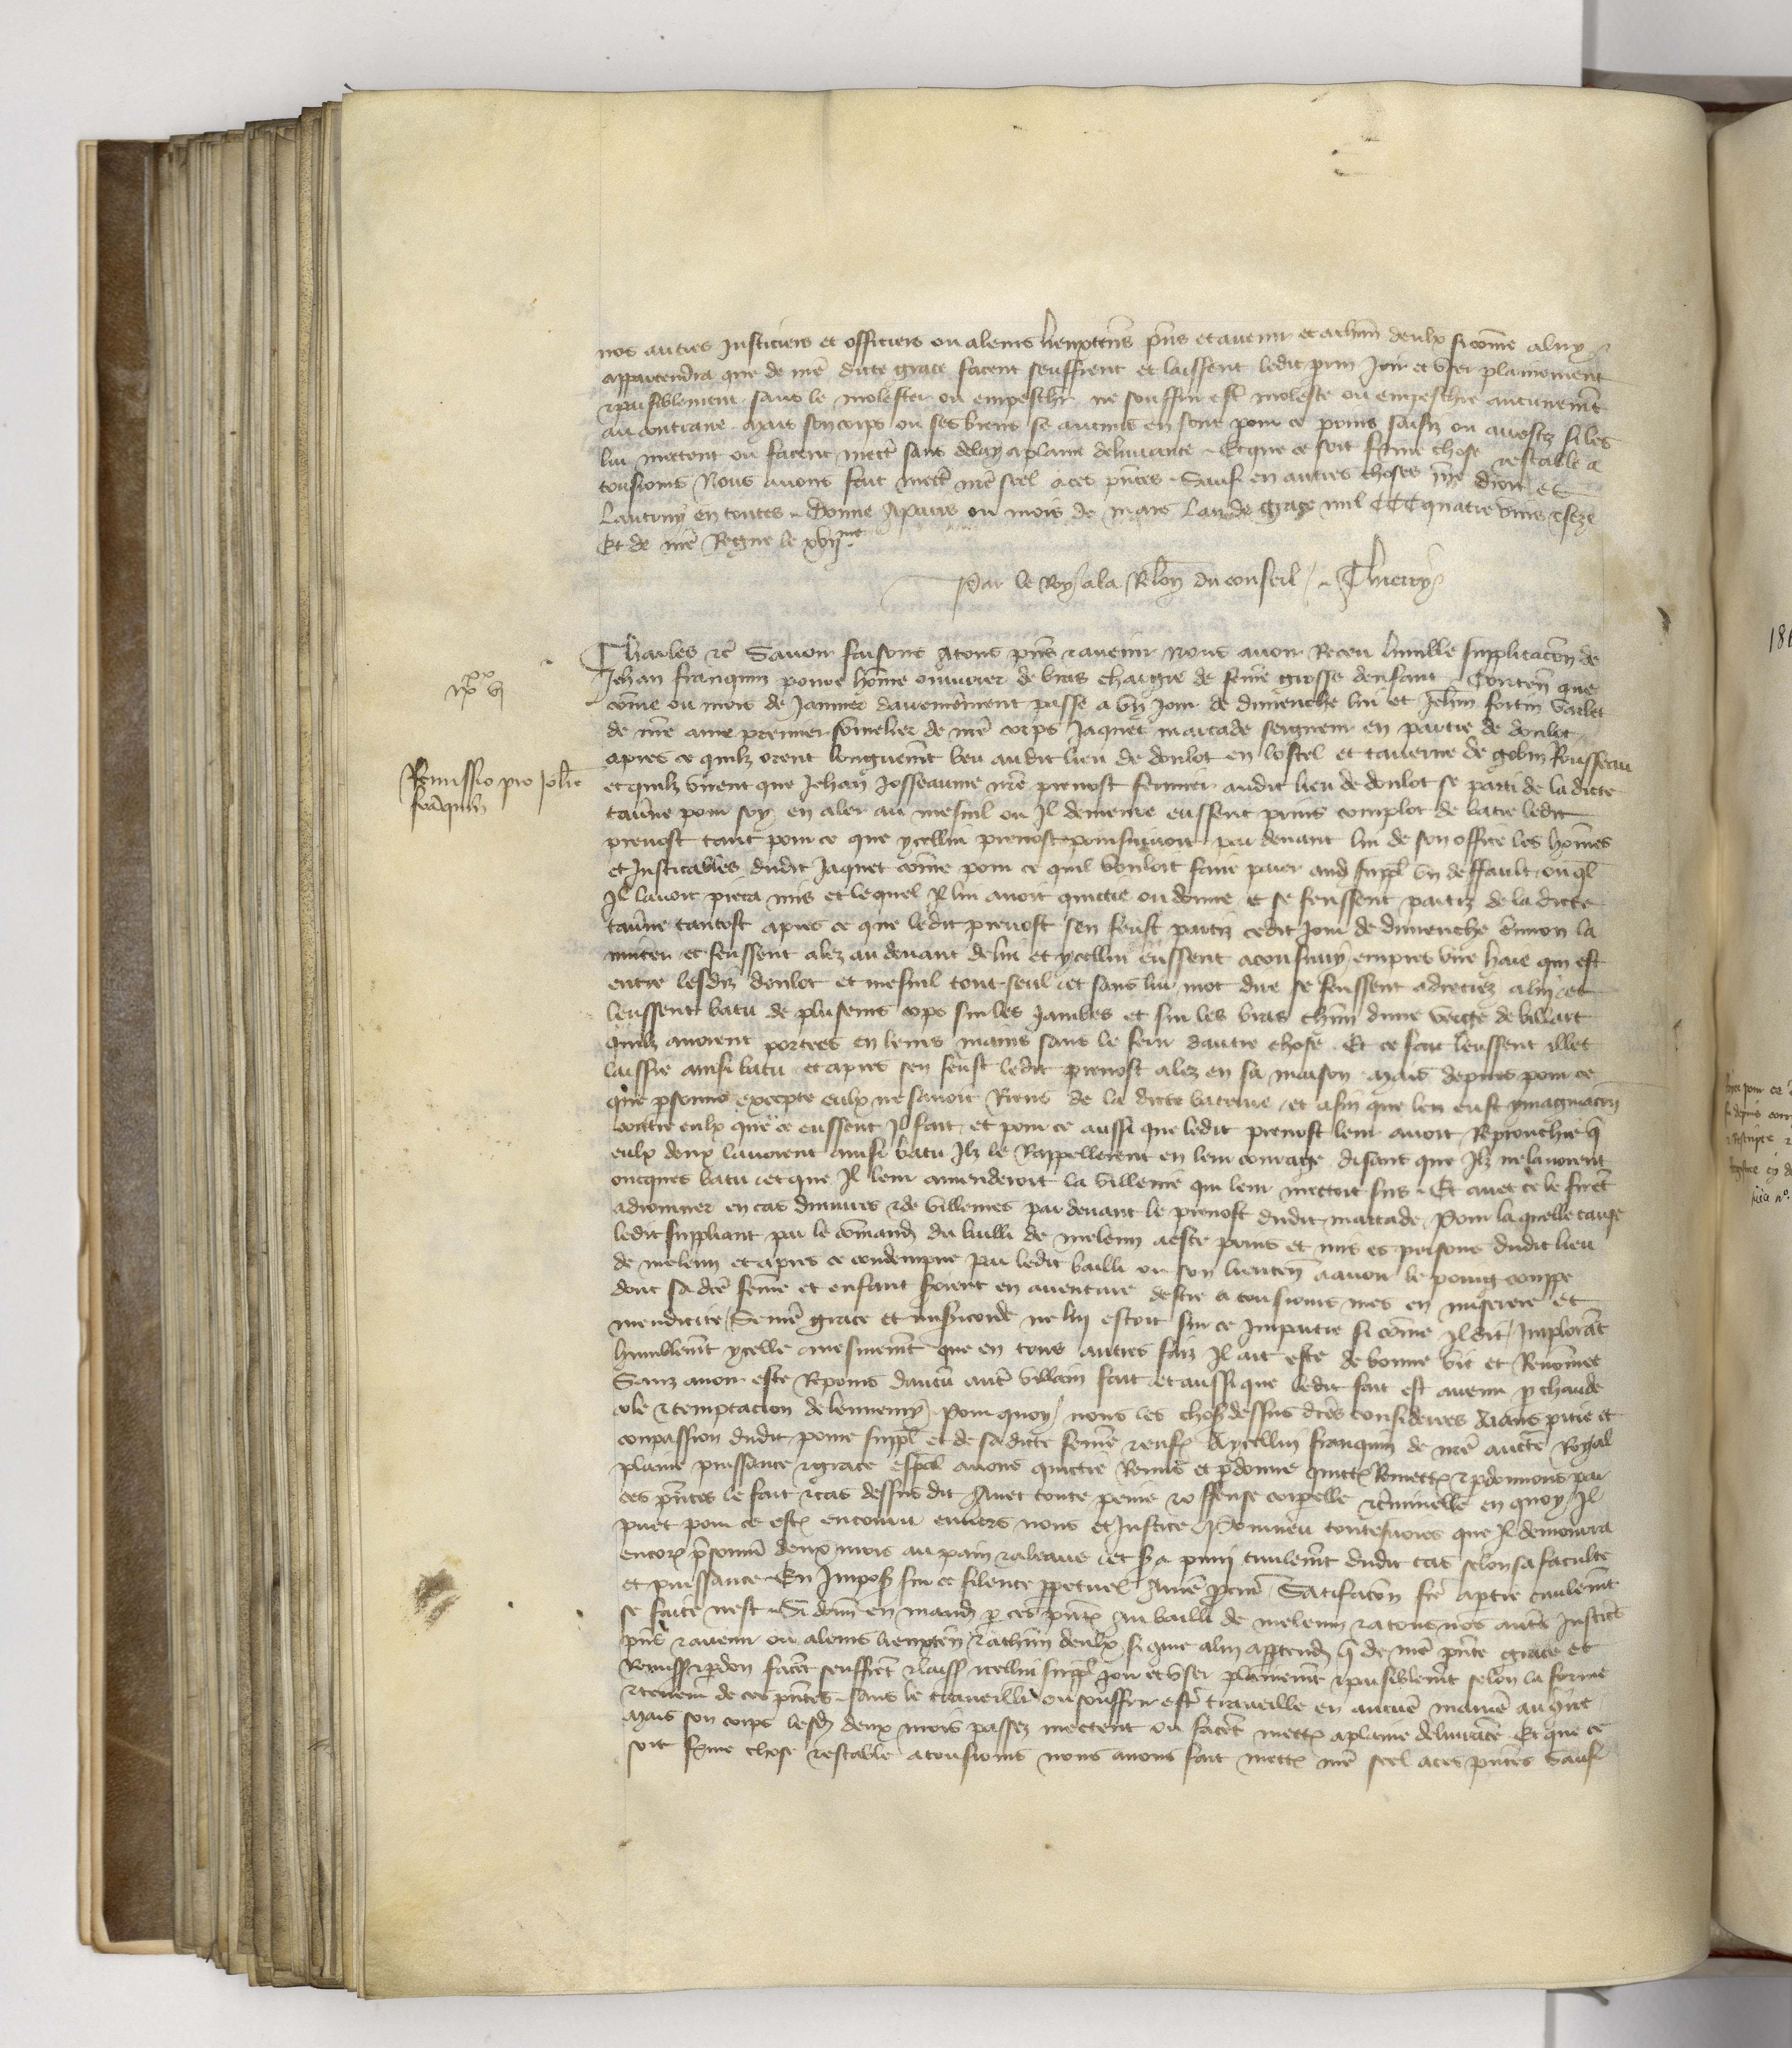 nos autres justiciers et officiers ou a leurs lieuxten̄s pn̄s et avenir et a chūn deulx si cōme a luy
appartendra que de nr̄e dicte grace facent seuffrent et laissent ledit prin joir et user plainement
et paisiblement sans le molester ou empeschier ne souffrir estr̄ moleste ou empeschie aucunemēt
au contraire mais son corps ou ses biens se aucuns en sont pour ce prins saisiz ou arrestez si les
lui mettent ou facent mectr̄ sans delay a plaine delivrance Et que ce soit ferme chose et estable a
tousiours Nous avons fait mectr̄ nr̄e seel a ces pn̄tes Sauf en autres choses nr̄e droit et
lautruy en toutes Donne a Paris ou mois de mars lan de grace mil CCC quatre vins et seze
Et de nr̄e Regne le xvij.me
Par le Roy a la Rel̄on du conseil Thierry
Charles etc̄ Savoir faisons a tous pn̄s et avenir nous avoir Receu lumble supplicacōn de
Jehan franquin povre hōme ouvrier de bras chargie de fem̄e grosse denfant Conten̄ que
cōme ou mois de Janvier derrenierement passe a un jour de dimenche lui et Jeh̄n fortin varlet
de nr̄e ame premier somelier de nr̄e corps Jaquet marcade seigneur en partie de donlot
apres ce quilz orent longuemēt beu audit lieu de donlot en lostel et taverne de gobin Rousseau
et quilz virent que Jehan Josseaume nr̄e prevost fermier audit lieu de donlot se parti de la dicte
tav̄ne pour soy en aler au mesnil ou Il demeure eussent prins complot de batre ledit
prevost tant pour ce que ycellui prevost poursuivoit par devant lui de son office les hōmes
et Justicables dudit Jaquet cōme pour ce quil vouloit faire paier aud suppl̄ un deffault ouql̄
Il lavoit pieca mis et lequel Il lui avoit quictie ou donne et se feussent partiz de la dicte
tav̄ne tantost apres ce que ledit prevost sen feust partiz cedit jour de dimenche environ la
nuitee et feussent alez au devant de lui et ycellui eussent aconsuiuy empres une haie qui est
entre lesdiz donlot et mesnil tout seul et sans lui mot dire se feussent adreciez a lui et
leussent batu de plusieurs cops sur les jambes et sur les bras chūn dune verge de billart
quilz avoient portees en leurs mains sans le ferir dautre chose Et ce fait leussent illec
laissie ainsi batu et apres sen feust ledit prevost alez en sa maison mais depuis pour ce
que personne excepte eulx ne savoit Riens de la dicte bateure et afin que len eust ymaginacōn
contre eulx que ce eussent Il fait et pour ce aussi que ledit prevost leur avoit Reprouchie q̄
eulx deux lavoient ainsi batu Ilz le Rappellerent en leur courage disant que Ilz ne lavoient
oncques batu et que Il leur amenderoit la villenie qui leur mettoit sus Et avec ce le firēt
adiourner en cas dinjures et de villenies par devant le prevost dudit marcade Pour laquelle cause
ledit suppliant par le cōmand du bailli de meleun a este prins et mis es prisons dudit lieu
de meleun et apres ce condempne par ledit bailli ou son lieuten̄ a avoir le poing coppe
dont sa dc̄e fem̄e et enfant seroient en aventure destre a tousiours mes en misere et
mendicite Se nr̄e grace et misericorde ne lui estoit sur ce impartie si cōme Il dit Implorāt
humblemēt ycelle mesmemēt que en tous autres faiz Il ait este de bonne vie et Renōmee
Sanz avoir este Reprins daucun autr̄ villain fait et aussi que ledit fait est avenu p chaude
cole et temptacion de lennemy Pour quoy nous les choses dessus dc̄es considerees Aians pitie et
compassion dudit povre suppl̄ et de sa dicte fem̄e et enf Aycellui franquin de nr̄e auctē Royal
plaine puissance et grace esp̄al avons quictie Remis et pdonne quictōs Remettōs et pdonnons par
ces pn̄tes le fait et cas dessus dit Avec toute peine et offense corporelle et criminelle en quoy Il
puet pour ce estr̄ encouru envers nous et Justice Pourveu toutesvoies que Il demourra
encores prisonnier deux mois au pain et a leaue et sera puni civilemēt dudit cas selon sa faculte
et puissance En Imposāt sur ce silence ppetuel A nr̄e procur̄ Satifacōn fc̄e a partie civilemēt
se faicte nest Si donn̄ en mand p ces pn̄tes Au bailli de meleun et a tous nos autrs Justic̄s
pn̄s et avenir ou a leurs lieuxten̄ et a chūn deulx si cōme a lui apptendr̄ q̄ de nr̄e pn̄te grace et
Remiss et pdon facēt seuffrēt et laissēt ycellui suppl̄ joir et user plainemēt et paisiblemēt selon la forme
et teneur de ces pn̄tes sans le travaillier ou souffrir estr̄ travaille en aucune maniē au contr̄e
Mais son corps lesd deux mois passez mectent ou facēt mettr̄ a plaine delivrāce Et que ce
soit ferme chose et estable a tousiours nous avons fait mettr̄ nr̄e seel a ces pn̄tes Sauf
ixxx vj
Remissio pro Joh̄e
franquin